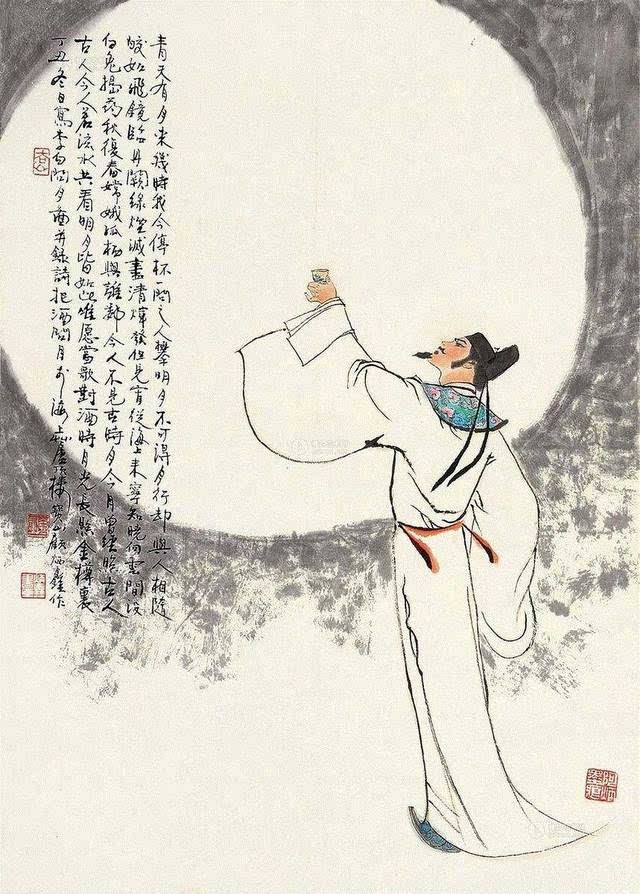 青天有月来幾時我今停杯一問之人攀明月不可得月行却與人相隨
皎如飛鏡臨丹闕綠煙滅盡清輝發但見宵從海上来寧知曉向雲間没
白兔搗药秋復春嫦娥孤栖與誰鄰今人不見古時月今月曾經照古人
古人今人若流水共看明月皆如此唯愿當歌對酒時月光長照金樽裏
丁丑冬日寫李白問月圖并録詩把酒問月於海上樓顧炳鑫作